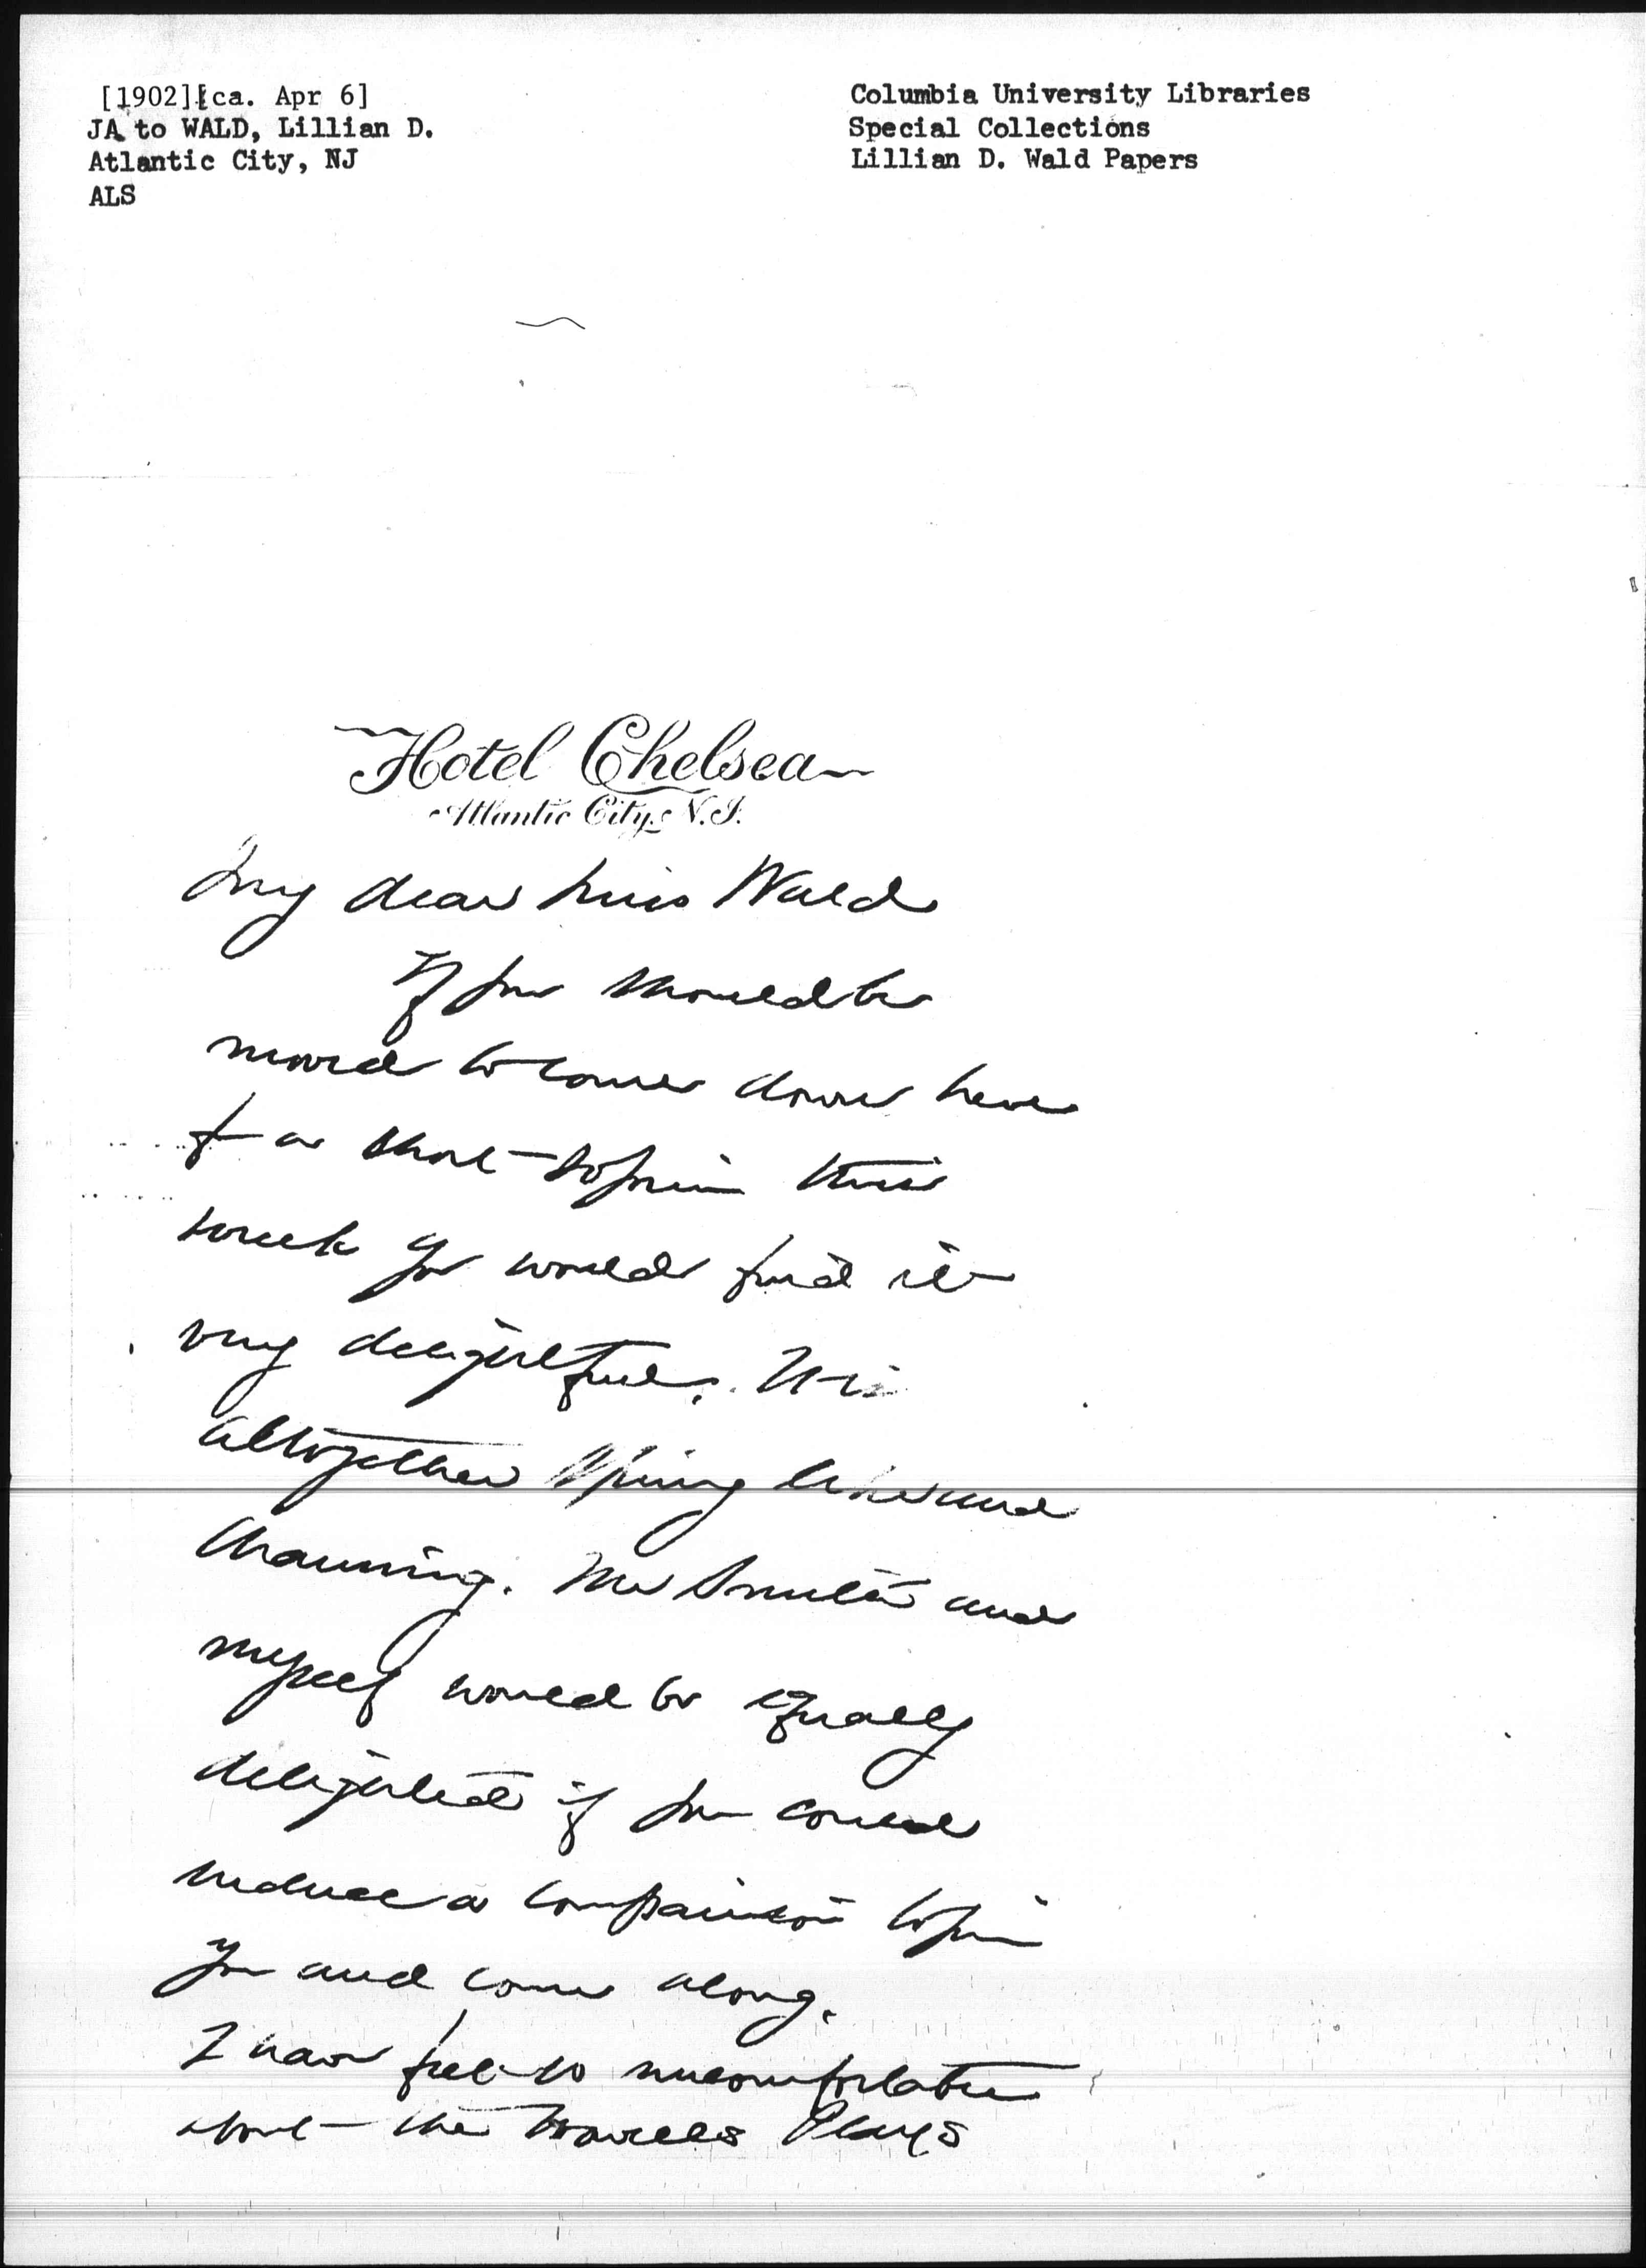 [1902][ca. Apr 6]
JA to WALD, Lillian D.
Atlantic City, NJ
ALS
Columbia University Libraries
Special Collections
Lillian D. Wald Papers
Hotel Chelsea
Atlantic City, N.J.
My dear Miss Wald
If you should be
moved to come down here
for a short sojourn this
week you would find it
very delightful. It is
altogether Spring like and
charming. Mrs Smith and
myself would be equally
delighted if you could
induce a companion to join
you and come along.
I have felt so uncomfortable
about the Plays